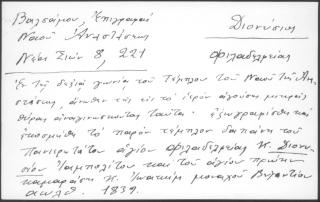 Βαλσάμου, Ἐπιγραφαὶ
Ναοῦ Ἀναστάσεως
Νέας Σιών 8, 221
Διονύσιος
Φιλαδελφείας
Ἐν τῇ δεξιᾷ γωνίᾳ τοῦ Τέμπλου τοῦ Ναοῦ τῆς Ἀνα-
στάσεως, ἄνωθεν τῆς εἰς τὸ ἱερὸν ἀγούσης μικρᾶς
θύρας ἀναγινώσκονται ταῦτα: ἐζωγραφίσθη καὶ
ἐκοσμήθη τὸ παρὸν τέμπλον δαπάνῃ τοῦ
Πανιερωτάτου ἁγίου Φιλαδελφείας Κ. Διονυ-
σίου καὶ τοῦ ἁγίου πρώην
καμαράση Κ. Ἰωακεὶμ μοναχοῦ Βυζαντίου
αωλθ. 1839.